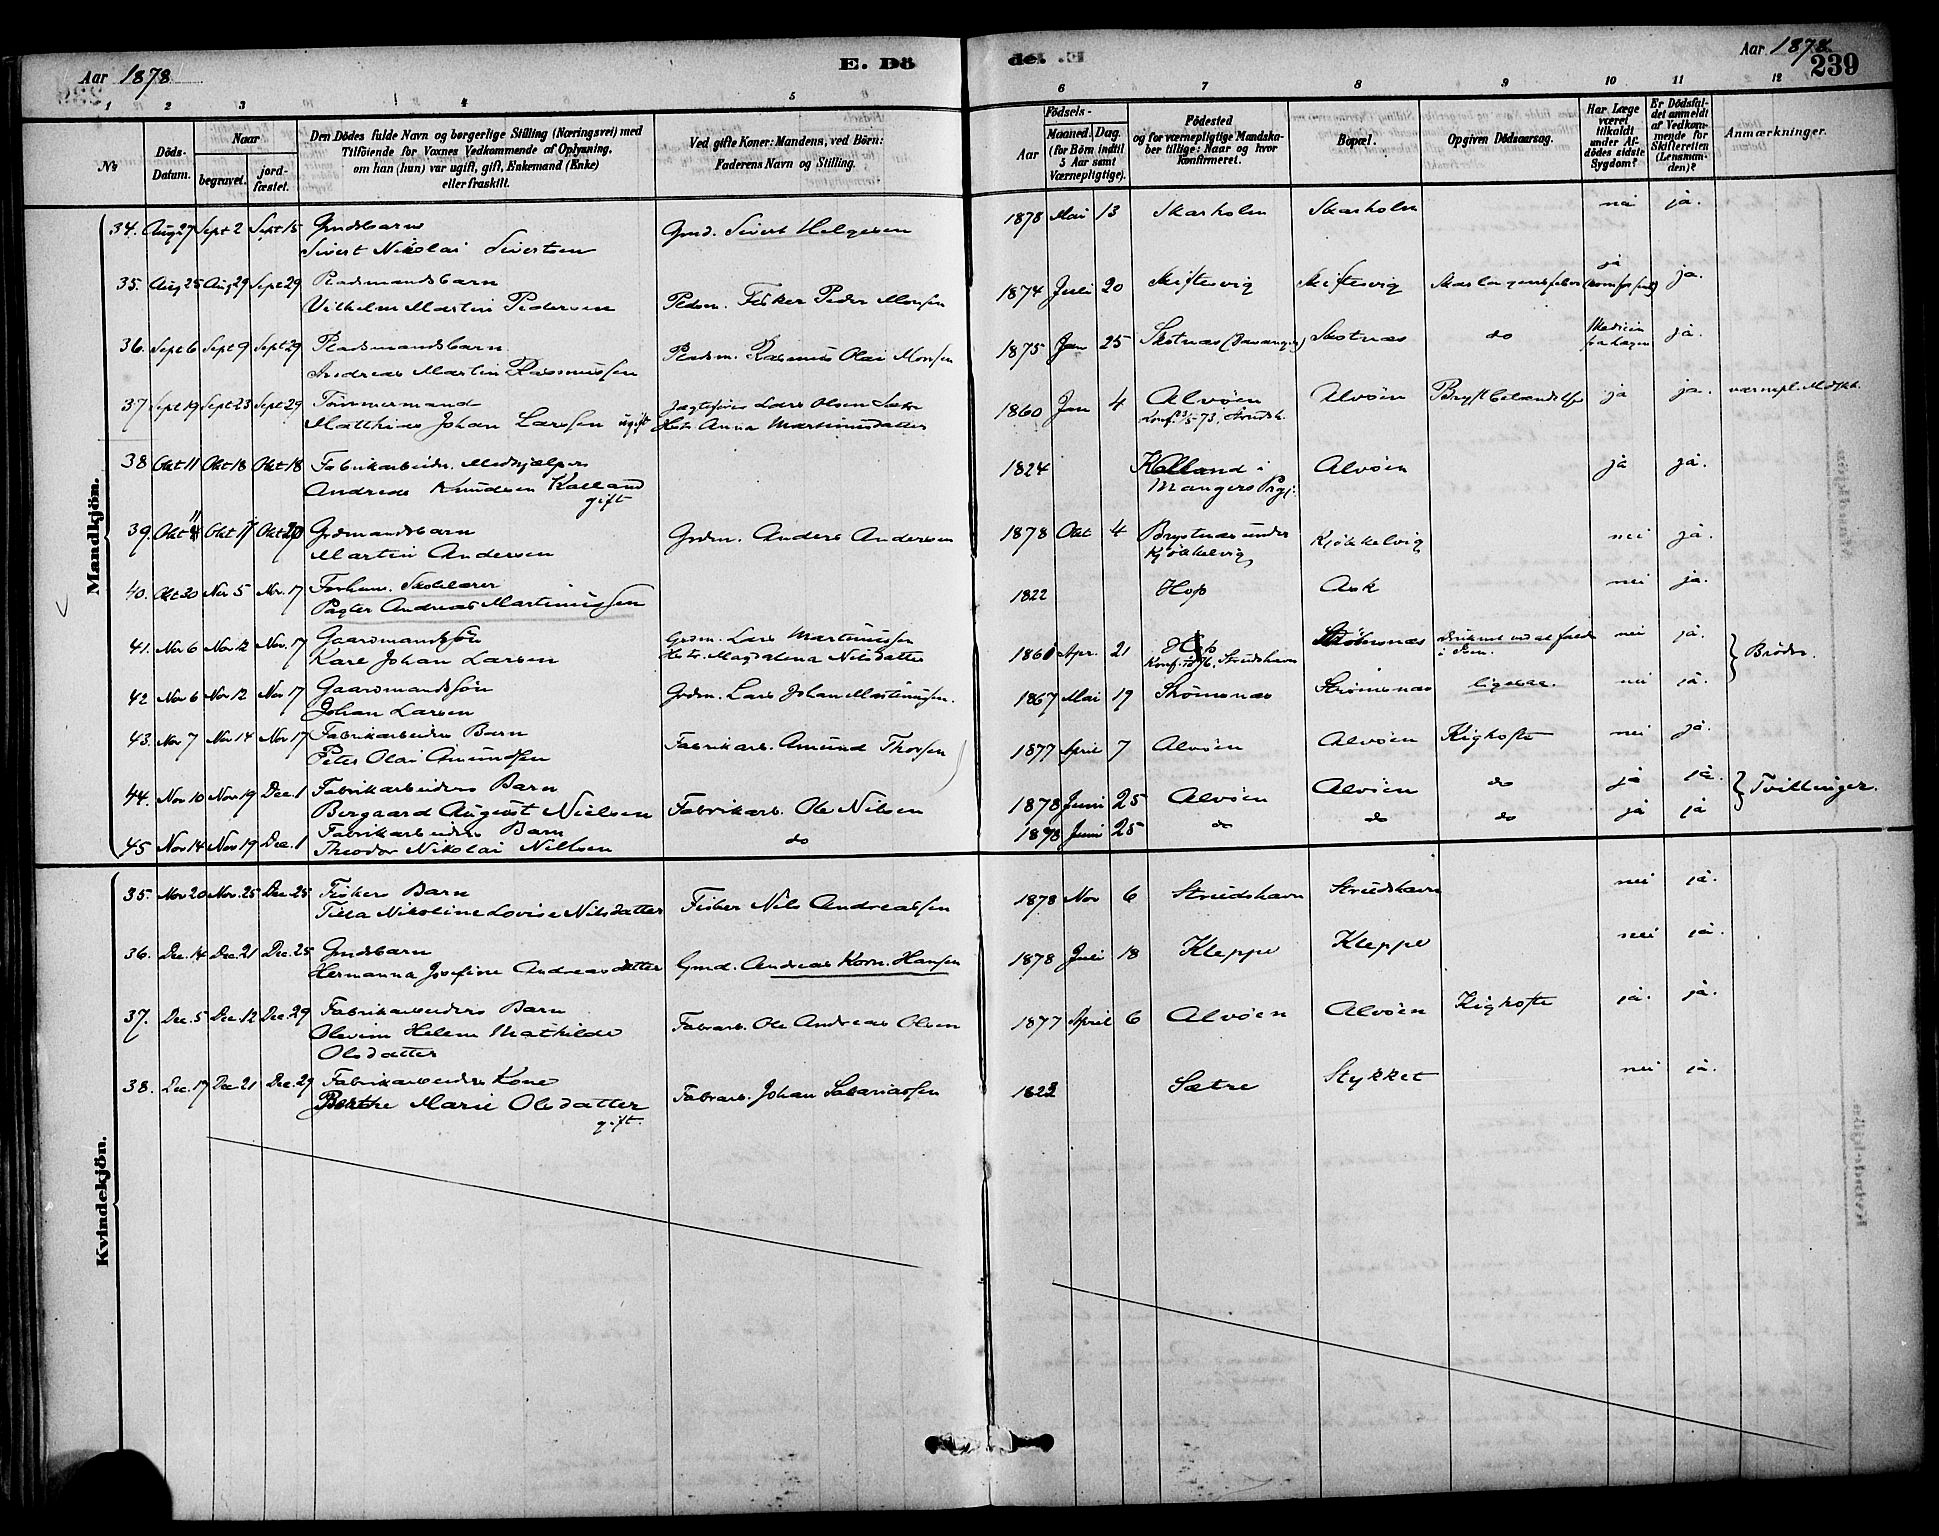 Aar 1878
E. Dö
de. E
Aar 1878
239
1 2 3 4 5 6 7 8 9 10 11 12
№
Döds-Datum.
Naar
begravet.
jord-fæstet.
Den Dödes fulde Navn og borgerlige Stilling (Næringsvei) med
Tilföiende for Voxnes Vedkommende af Oplysning,
om han (hun) var ugift, gift, Enkemand (Enke)
eller fraskilt.
Ved gifte Koner: Mandens, ved Börn:
Faderens Navn og Stilling.
Födsels-
Aar
Maaned. Dag.
(for Börn indtil
5 Aar samt
Værnepligtige).
Födested
og for værnepligtige Mandska-
ber tillige: Naar og hvor
konfirmeret.
Bopæl.
Opgiven Dödsaarsag.
Har Læge
været
tilkaldt
under Af-
dödes sidste
Sygdom?
Er Dödsfal-
det anmeldt
af Vedkom-
mende for
Skifteretten
(Lensman-
den)?
Anmærkninger.
Mandkjön.
34. Aug 27 Sept 2 Sept 15 Gmdsbarn
Sivert Nikolai Sivertsen
Gmd. Sivert Helgesen 1878 Mai 13 Skarholm Skarholm nei ja.
35. Aug 25 Aug 29 Sept 29 Pladsmandsbarn
Vilhelm Martin Pedersen
Pladsm. Fisker Peder Monsen 1874 Juli 20 Skiftesvig Skiftesvig ja ja.
36. Sept 6 Sept 9 Sept 29 Pladsmandsbarn
Andreas Martin Rasmussen
Pladsm. Rasmus Olai Monsen 1875 Jan 25 Skotnæs Skotnæs do Medicin fra Lægen ja.
37 Sept 19 Sept 23 Sept 29 Tømmermand
Matthias Johan Larssen ugift
Lars Olsen
Anna Martinusdatter
1860 Jan 4 Alvøen
Alvøen Brystbetændelse ja ja. værnepl.
38 Okt 11 Okt 18 Okt 18 Fabrikarbeider. Medhjælper
Andreas Knudsen Kalland
gift
1824 Kalland i
Mangers Prgj.
Alvøen ja ja.
39. Okt 11 Okt 17 Okt 20 Grdmandsbarn
Martin Andersen
Grdm. Anders Andersen 1878 Okt 4 Brystnæs under
Kjøkkelvig
Kjøkkelvig nei ja.
40. Okt 30 Nov 5 Nov. 17 Forhenv. Skolelærer
Andreas Martinussen
1822 Hop Ask nei ja.
41. Nov 6 Nov 12 Nov. 17 Gaardmandssøn
Karl Johan Larsen
Grdm. Lars Martinussen
Hstr. Magdalena Nilsdatter
1861 Apr. 21 Hop
Konf. 1876, Strudshavn
Strømsnæs nei ja.
Brødre.
42 Nov 6 Nov 12 Nov 17 Gaardmandssøn
Johan Larsen
Grdm. Lars Johan Martinussen. 1867 Mai 19 Strømsnæs Strømsnæs ligesaa. nei ja.
43. Nov 7 Nov 14 Nov 17 Fabrikarbeiders Barn
Peter Olai Amundsen
Fabrikarb. Amund Thorsen 1877 April 7 Alvøen Alvøen Kighoste nei ja.
44. Nov 10 Nov 19 Dec. 1 Fabrikarbeiders Barn
Bergaard August Nielsen
Fabrikarb. Ole Nilsen 1878 Juni 25 Alvøen Alvøen do ja ja.
Tvillinger.
45 Nov 14 Nov 19 Dec. 1 Fabrikarbeiders Barn
Theodor Nikolai Nielsen
do 1878 Juni 25 do do do ja ja
Kvindekjön.
35. Nov 20 Nov. 25 Dec. 25 Fisker Barn
Nikoline Lovise Nilsdatter
Fisker Nils Andreassen 1878 Nov 6 Strudshavn Strudshavn nei ja.
36. Dec. 14 Dec. 21 Dec. 25 Gmdsbarn
Hermanna Josefine Andreasdatter
Gmd. Andreas Korn. Hansen 1878 Juli 18 Kleppe Kleppe nei ja.
37. Dec. 5 Dec. 12 Dec. 29 Fabrikarbeiders Barn
Olevine Helene Mathilde
Olsdatter
Fabrarb. Ole Andreas Olsen 1877 April 6 Alvøen Alvøen Kighoste ja. ja.
38. Dec. 17 Dec 21 Dec. 29 Fabrikarbeiders Kone
Berthe Marie Olsdatter
gift.
Fabrarb. Johan Sakariassen 1823 Sætre Stykket nei ja.